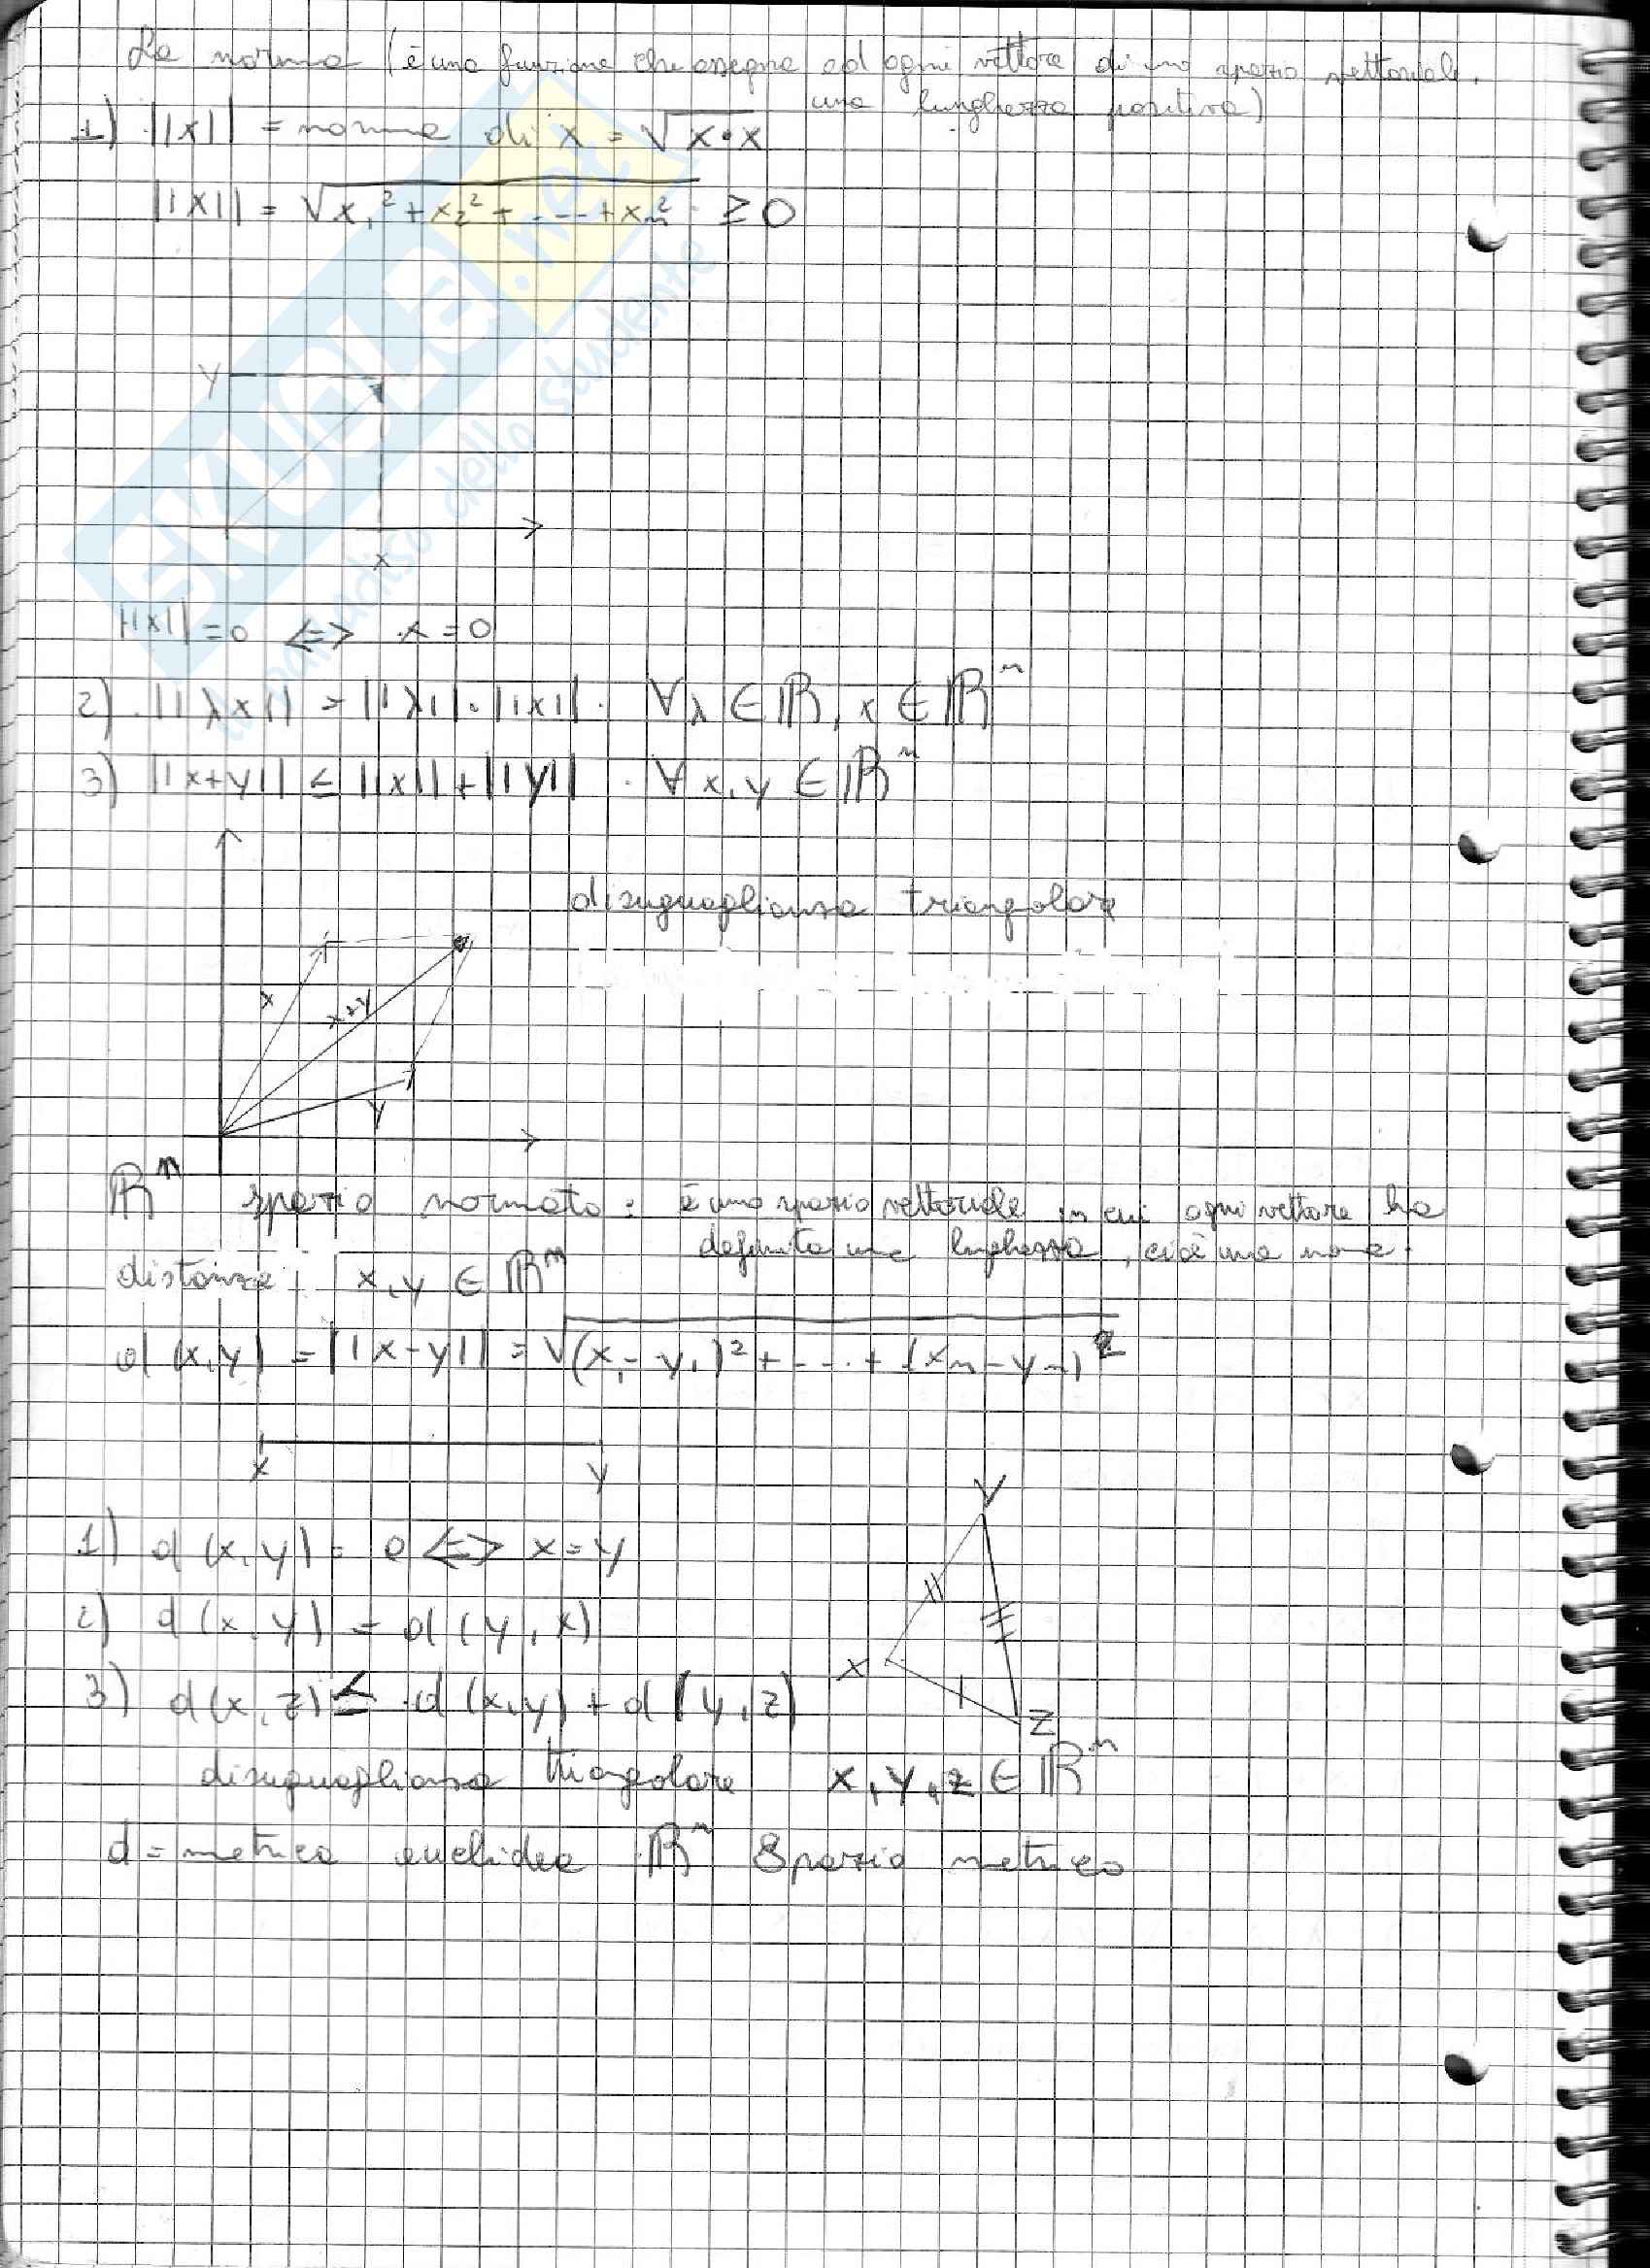 La norma (è una funzione che assegna ad ogni vettore di uno spazio vettoriale,
una lunghezza positiva)
1) ||x|| = norma di x = √x•x
||x|| = √x₁² + x₂² + .--- + xₙ² ≥ 0
y
x
||x|| = 0 <=> x = 0
2) ||λx|| = ||λ||·||x|| ∀λ ∈ ℝ, x ∈ ℝⁿ
3) ||x+y|| ≤ ||x|| + ||y|| ∀x,y ∈ ℝⁿ
disuguaglianza triangolare
x
x+y
y
ℝⁿ spazio normato: è uno spazio vettoriale in cui ogni vettore ha
definita una lunghezza, cioè una norma.
distanza: x,y ∈ ℝⁿ
d(x,y) = ||x-y|| = √(x₁-y₁)² + --.. + (xₙ-yₙ)²
x y
y
1) d(x,y) = 0 <=> x=y
2) d(x,y) = d(y,x)
x
3) d(x,z) ≤ d(x,y) + d(y,z)
z
disuguaglianza triangolare x,y,z ∈ ℝⁿ
d = metrica euclidea ℝⁿ Spazio metrico
SKUOLA.net
il paradiso dello studente